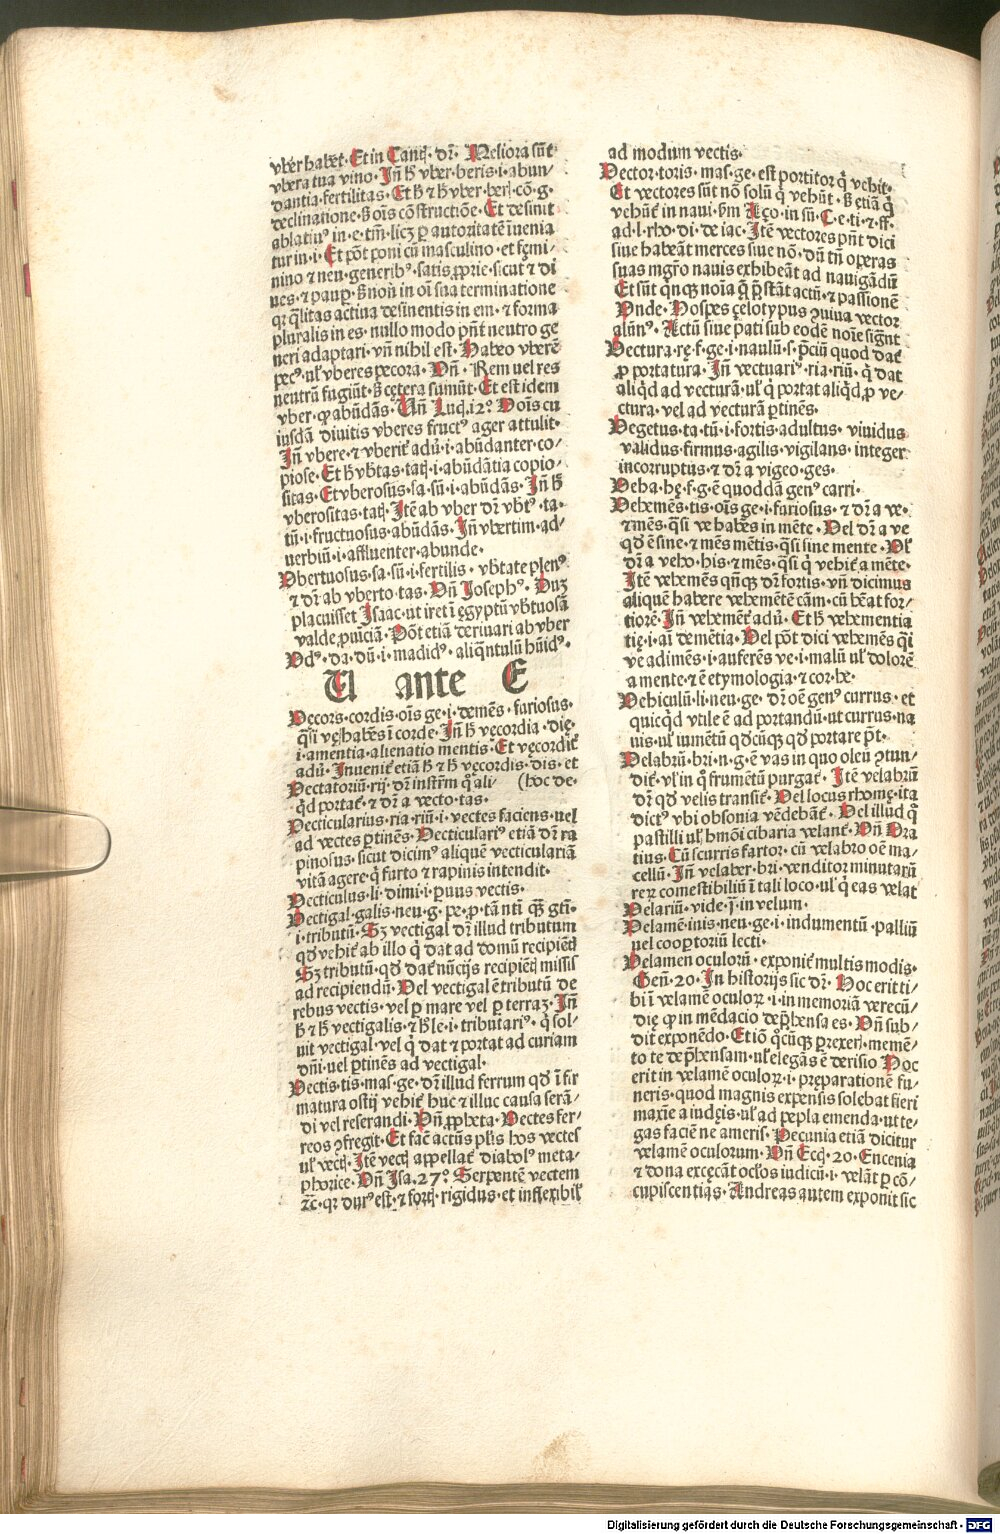 vber habet. Et in Canti. dr̄. Meliora sūt
vbera tua vino. Jn̄ ħ vber. beris. i. abun-
dantia. fertilitas. Et ħ ⁊ ħ vber. beri. cō. g.
declinatione. s̄ oīs cōstructiōe. Et desinit
ablatiuꝰ in. e. tm̄. licꝫ ꝑ autoritatē inuenia
tur in. i. Et pōt poni cū masculino. et fęmi-
nino ⁊ neu. generibꝰ. satis ꝓprie. sicut ⁊ di
ues. ⁊ pauꝑ. s̄ non in oī sua terminatione
qꝛ q̄litas actiua desinentis in em. ⁊ forma
pluralis in es. nullo modo pn̄t neutro ge
neri adaptari. vn̄ nihil est. Habeo vberē
pecꝰ. ul' vberes pecora. Vn̄. Rem uel res
neutrū fugiūt. s̄ cętera sumūt. Et est idem
vber. ꝙ abūdās. Vn̄ Luc. 12º. Hoīs cu
iusdā diuitis vberes fructꝰ ager attulit.
Jn̄ vbere. ⁊ vberiꝰ. adū. i. abūdanter co-
piose. Et ħ vb̄tas. tatꝭ. i. abūdātia copio-
sitas. Et vberosus. sa. sū. i. abūdās. Jn̄ ħ
vberositas. tatꝭ. Jtē ab vber dr̄ vb̄tꝰ. ta.
tū. i. fructuosus. abūdās. Jn̄ vbertim. ad-
uerbiū. i. affluenter. abunde.
Vbertuosus. sa. sū. i. fertilis. vb̄tate plenꝰ
⁊ dr̄ ab vberto. tas. Vn̄ Josephꝰ. Huꝫ
placuisset Jsaac. ut iret ī ęgyptū vb̄tuosā
valde ꝓuīciā. Pōt etiā deriuari ab vber
Vdꝰ. da. dū. i. madidꝰ. aliq̄ntulū hūidꝰ.
U ante E
Vecors. cordis. oīs ge. i. demēs. furiosus.
q̄si vę habēs ī corde. Jn̄ ħ vecordia. dię.
i. amentia. alienatio mentis. Et vęcordit̄
adū. Jnuenit̄ etiā ħ ⁊ ħ vęcordis. dis. et
Vectatoriū. rij. dr̄ instrm̄ q̄ ali- (hoc de.
q̇d portat̄. ⁊ dr̄ a vecto. tas.
Vecticularius. ria. riū. i. vectes faciens. uel
ad vectes ꝑtinēs. Vecticulariꝰ etiā dr̄ ra
pinosus. sicut dicimꝰ aliquē vecticulariā
vitā agere. q̇ furto ⁊ rapinis intendit.
Vecticulus. li. dimi. i. ꝑuus vectis.
Vectigal. galis. neu. g. pe. ꝓ. tāntī qꝫ gtī.
i. tributū. Sꝫ vectigal dr̄ illud tributum
qd̄ vehit̄ ab illo q̇ dat ad domū recipiētꝭ
Sꝫ tributū. qd̄ dat̄ nūcijs recipiētꝭ missis
ad recipiendū. Vel vectigal ē tributū de
rebus vectis. vel ꝑ mare vel ꝑ terraꝫ. Jn̄
ħ ⁊ ħ vectigalis. ⁊ ħ le. i. tributariꝰ. q̇ sol-
uit vectigal. vel q̇ dat ⁊ portat ad curiam
dn̄i. uel ꝑtinēs ad vectigal.
Vectis. tis. mas. ge. dr̄ illud ferrum qd̄ ī fir
matura ostij vehit̄ huc ⁊ illuc causa serā-
di vel reserandi. Vn̄ ꝓpheta. Vectes fer-
reos ꝯfregit. Et facē actūs plīs hos vectes
ul' vectꝭ. Jtē vectꝭ appellat̄ diabolꝰ meta-
phorice. Vn̄ Jsa. 27º. Serpentē vectem
⁊c. qꝛ durꝰ est. ⁊ fortꝭ. rigidus. et inflexibil'
ad modum vectis.
Vector. toris. mas. ge. est portitor q̇ vehit.
Et vectores sūt nō solū q̇ vehūt. s̄ etiā q̇
vehūt̄ in naui. ſm Açō. in sū. C. e. ti. ⁊ ff.
ad. l. rho. di. de iac. Jtē vectores pn̄t dici
siue habeāt merces siue nō. dū tn̄ operas
suas mgr̄o nauis exhibeāt ad nauigādū
Et sūt qnqꝫ noīa q̄ p̄stāt actū. ⁊ passionē
Vnde. Hospes çelotypus ꝯuiua vector
alūnꝰ. Actū siue pati sub eodē noīe signt
Vectura. rę. f. ge. i. naulū. s. p̄ciū quod dat̄
ꝓ portatura. Jn̄ vectuariꝰ. ria. riū. q̇ dat
aliq̇d ad vecturā. ul' q̇ portat aliq̇d ꝓ ve-
ctura. vel ad vecturā ꝑtinēs.
Vegetus. ta. tū. i. fortis. adultus. viuidus
validus. firmus. agilis. vigilans. integer
incorruptus. ⁊ dr̄ a vigeo. ges.
Veha. hę. f. g. ē quoddā genꝰ carri.
Vehemēs. tis. oīs ge. i. furiosus. ⁊ dr̄ a ve.
⁊ mēs. q̄si ve habēs in mēte. Vel dr̄ a ve
qd̄ ē sine. ⁊ mēs mētis. q̄si sine mente. Vl'
dr̄ a veho. his. ⁊ mēs. q̄si q̇ vehit̄ a mēte.
Jtē vehemēs qn̄qꝫ dr̄ fortis. vn̄ dicimus
aliquē habere vehemētē cām. cū hēat for-
tiorē. Jn̄ vehemēt̄ adū. Et ħ vehementia
tię. i. aī demētia. Vel pōt dici vehemēs q̄i
ve adimēs. i. auferēs ve. i. malū ul' dolorē
a mente. ⁊ ē etymologia. ⁊ cor. he.
Vehiculū. li. neu. ge. dr̄ oē genꝰ currus. et
quicq̇d vtile ē ad portandū. ut currus. na
uis. ul' iumētū qd̄cūqꝫ qd̄ portare p̄t.
Velabrū. bri. n. g. ē vas in quo oleū ꝯtun-
dit̄. vl' in q̇ frumētū purgat̄. Jtē velabrū
dr̄ qd̄ velis transit̄. Vel locus rhomę. ita
dictꝰ. vbi obsonia vēdebāt̄. Vel illud q̊
pastilli ul' hmōi cibaria velant̄. Vn̄ Ora
tius. Cū scurris fartor. cū velabro oē ma-
cellū. Jn̄ velaber. bri. venditor minutarū
reꝝ comestibiliū ī tali loco. ul' q̇ eas velat
Velariū. vide. ī. in velum.
Velamē. inis. neu. ge. i. indumentū. palliū
uel cooꝑtoriū lecti.
Velamen oculorū. exponit̄ multis modis.
Gen̄. 20. Jn historijs sic dr̄. Hoc erit ti-
bi ī velamē oculoꝝ. i. in memoriā verecū-
dię ꝙ in mēdacio dep̄hensa es. Vn̄ sub-
dit exponēdo. Etiō q̊cūqꝫ ꝑrexerꝭ. memē-
to te dep̄hensam. ul' elegās ē derisio Hoc
erit in velamē oculoꝝ. i. pręparationē fu-
neris. quod magnis expensis solebat fieri
maxīe a iudęis. ul' ad pepla emenda. ut te-
gas faciē ne ameris. Pecunia etiā dicitur
velamē oculorum. Vn̄ Eccꝭ. 20. Encenia
⁊ dona excęcāt ocl'os iudicū. i. velāt ꝑ cō-
cupiscentias. Andreas autem exponit sic
Digitalisierung gefördert durch die Deutsche Forschungsgemeinschaft - DFG